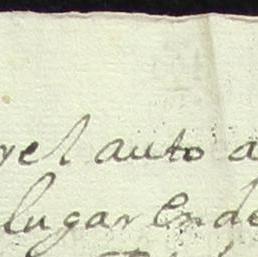 rel auto a
lugar en de